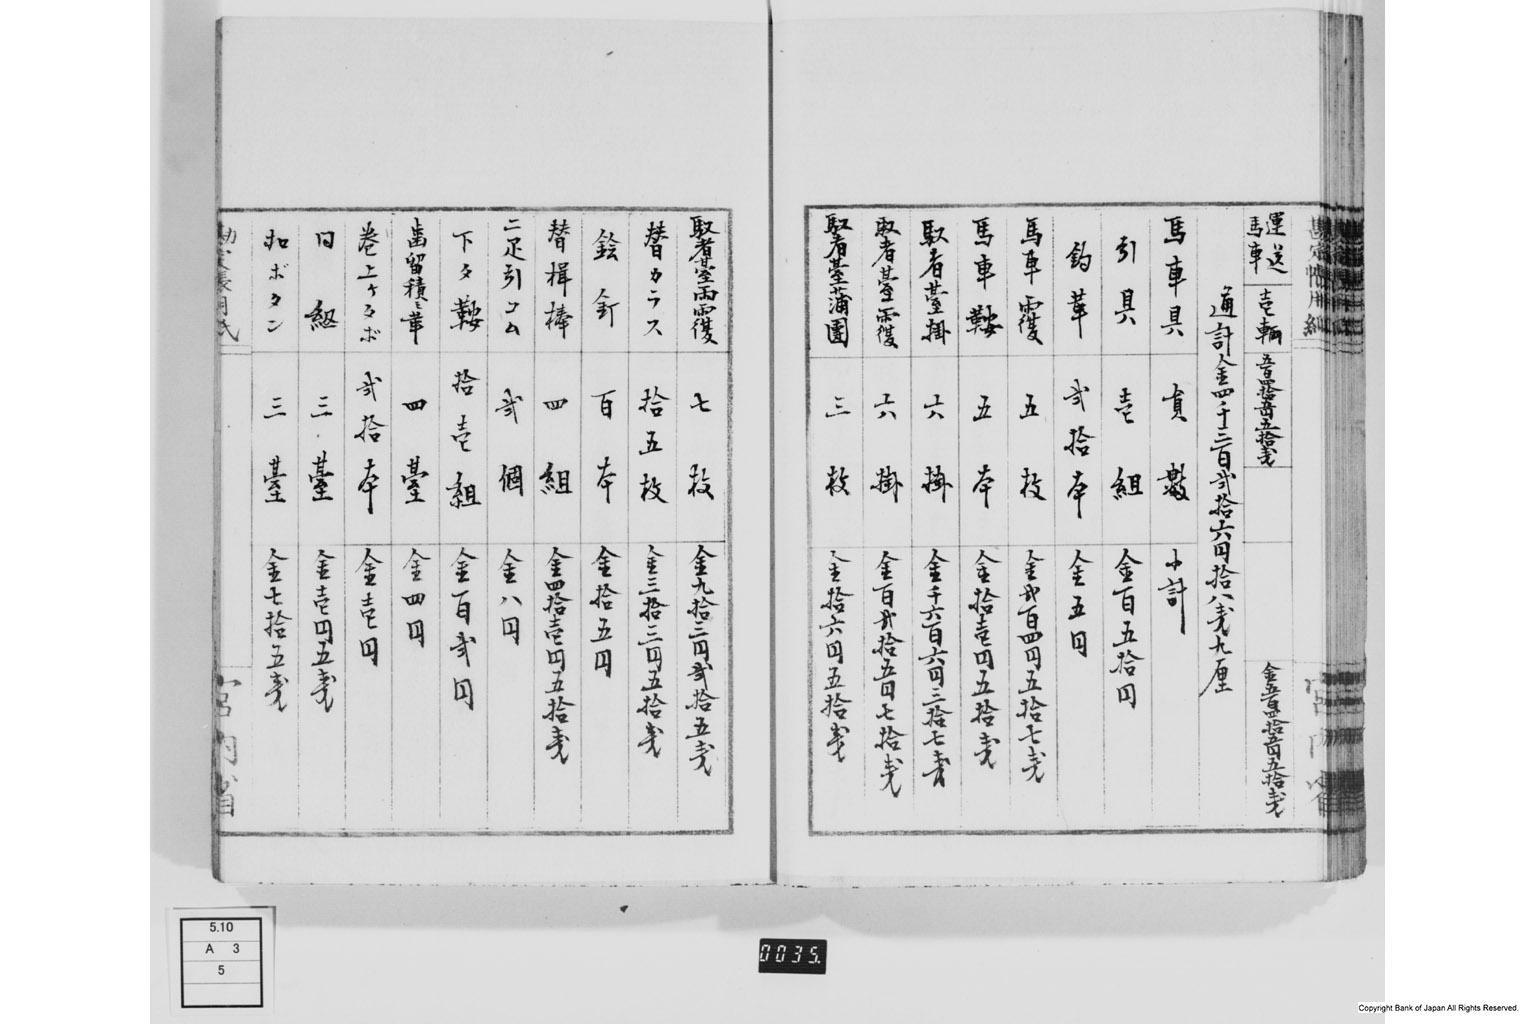 運送馬車 壱輌 五百四拾五円五拾銭 金五百四拾五円五拾銭
通計金四千三百弐拾六円拾八銭九厘
馬車具 員數 小計
引具 壱組 金百五拾円
鈎革 弐拾本 金五円
馬車覆 五枚 金弐百四円五拾七銭
馬車鞍 五本 金拾壱円五拾銭
馭者臺掛 六掛 金千六百六円三拾七銭
馭者臺覆 六掛 金百弐拾五円七拾銭
馭者臺蒲團 三枚 金拾六円五拾銭
馭者臺雨覆 七枚 金九拾三円弐拾五銭
替カラス 拾五枚 金三拾三円五拾銭
釘 百本 金拾五円
替楫棒 四組 金四拾壱円五拾銭
二足引コム 弐個 金八円
下タ鞍 拾壱組 金百弐円
歯留積ミ革 四臺 金四円
巻上ケタボ 弐拾本 金壱円
同 紐 三臺 金壱円五銭
ボタン 三臺 金七拾五銭
宮内省
5.10
A 3
5
0035.
Copyright Bank of Japan All Rights Reserved.